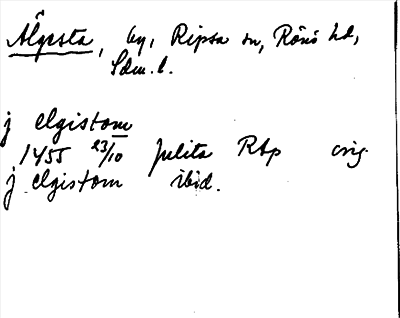 Älgesta, by, Ripsa sn, Rönö hd,
Sdm. l.
j elgistom
1455 23/10 Julita RAp orig.
j elgistom ibid.